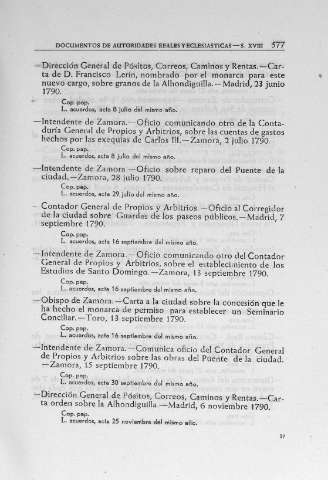 DOCUMENTOS DE AUTORIDADES REALES Y ECLESIASTICAS—S. XVIII 577
—Dirección General de Pósitos, Correos, Caminos y Rentas.—Car-
ta de D. Francisco Lerin, nombrado por el monarca para este
nuevo cargo, sobre granos de la Alhondiguilla.—Madrid, 23 junio
1790.
Cop. pap.
L. acuerdos, acta 8 julio del mismo año.
—Intendente de Zamora.—Oficio comunicando otro de la Conta-
duría General de Propios y Arbitrios, sobre las cuentas de gastos
hechos por las exequias de Carlos III.—Zamora, 2 julio 1790.
Cop. pap.
L. acuerdos, acta 8 julio del mismo año.
—Intendente de Zamora—Oficio sobre reparo del Puente de la
ciudad.—Zamora, 28 julio 1790.
Cop. pap.
L. acuerdos, acta 29 julio del mismo año.
—Contador General de Propios y Arbitrios—Oficio al Corregidor
de la ciudad sobre Guardas de los paseos públicos.—Madrid, 7
septiembre 1790.
Cop. pap.
L. acuerdos, acta 16 septiembre del mismo año.
—Intendente de Zamora.—Oficio comunicando otro del Contador
General de Propios y Arbitrios, sobre el establecimiento de los
Estudios de Santo Domingo.—Zamora, 13 septiembre 1790.
Cop. pap.
L. acuerdos, acta 16 septiembre del mismo año.
—Obispo de Zamora.—Carta a la ciudad sobre la concesión que le
ha hecho el monarca de permiso para establecer un Seminario
Conciliar.—Toro, 13 septiembre 1790.
Cop. pap.
L. acuerdos, acta 16 septiembre del mismo año.
—Intendente de Zamora.—Comunica oficio del Contador General
de Propios y Arbitrios sobre las obras del Puente de la ciudad.
—Zamora, 15 septiembre 1790.
Cop. pap.
L. acuerdos, acta 30 septiembre del mismo año.
—Dirección General de Pósitos, Correos, Caminos y Rentas.—Car-
ta orden sobre la Alhondiguilla—Madrid, 6 noviembre 1790.
Cop. pap.
L. acuerdos, acta 25 noviembre del mismo año.